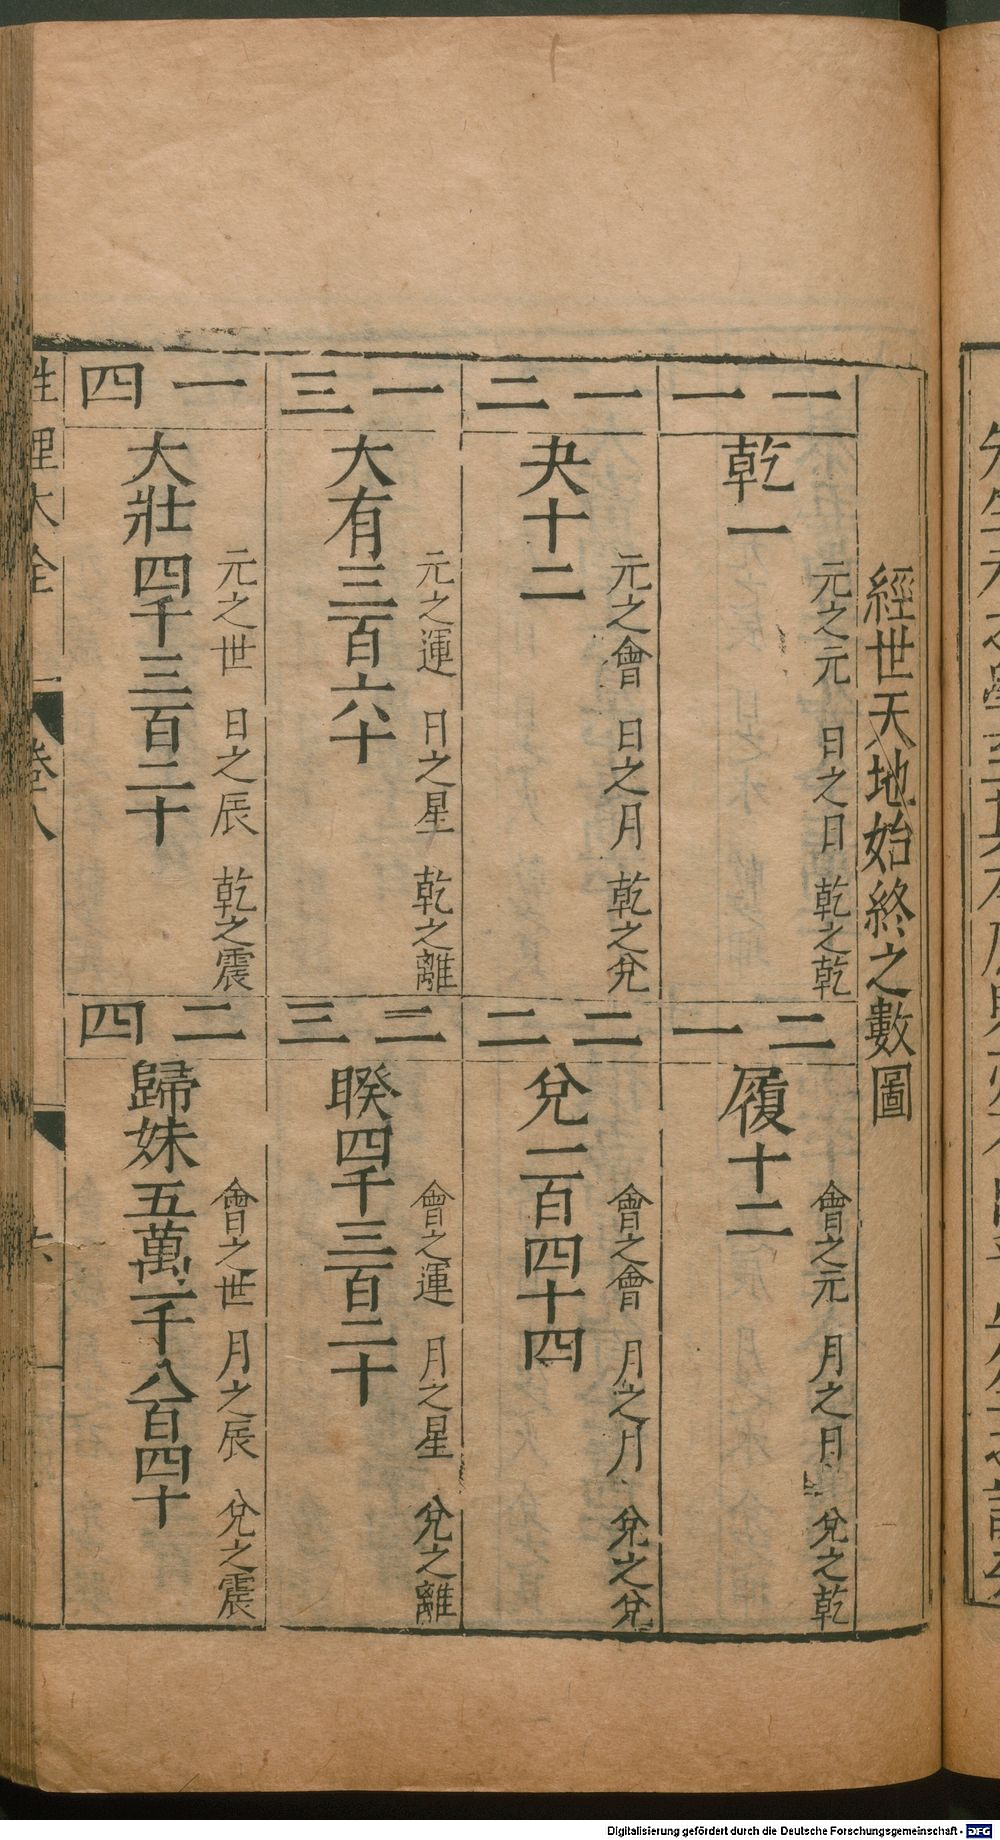 經世天地始終之數圖
一一
元之元 日之日 乾之乾
乾一
二一
會之元 月之日 兌之乾
履十二
一二
元之會 日之月 乾之兌
夬十二
二二
會之會 月之月 兌之兌
兌一百四十四
一三
元之運 日之星 乾之離
大有三百六十
二三
會之運 月之星 兌之離
睽四千三百二十
一四
元之世 日之辰 乾之震
大壯四千三百二十
二四
會之世 月之辰 兌之震
歸妹五萬一千八百四十
性理大全 卷八
六
Digitalisierung gefördert durch die Deutsche Forschungsgemeinschaft - DFG